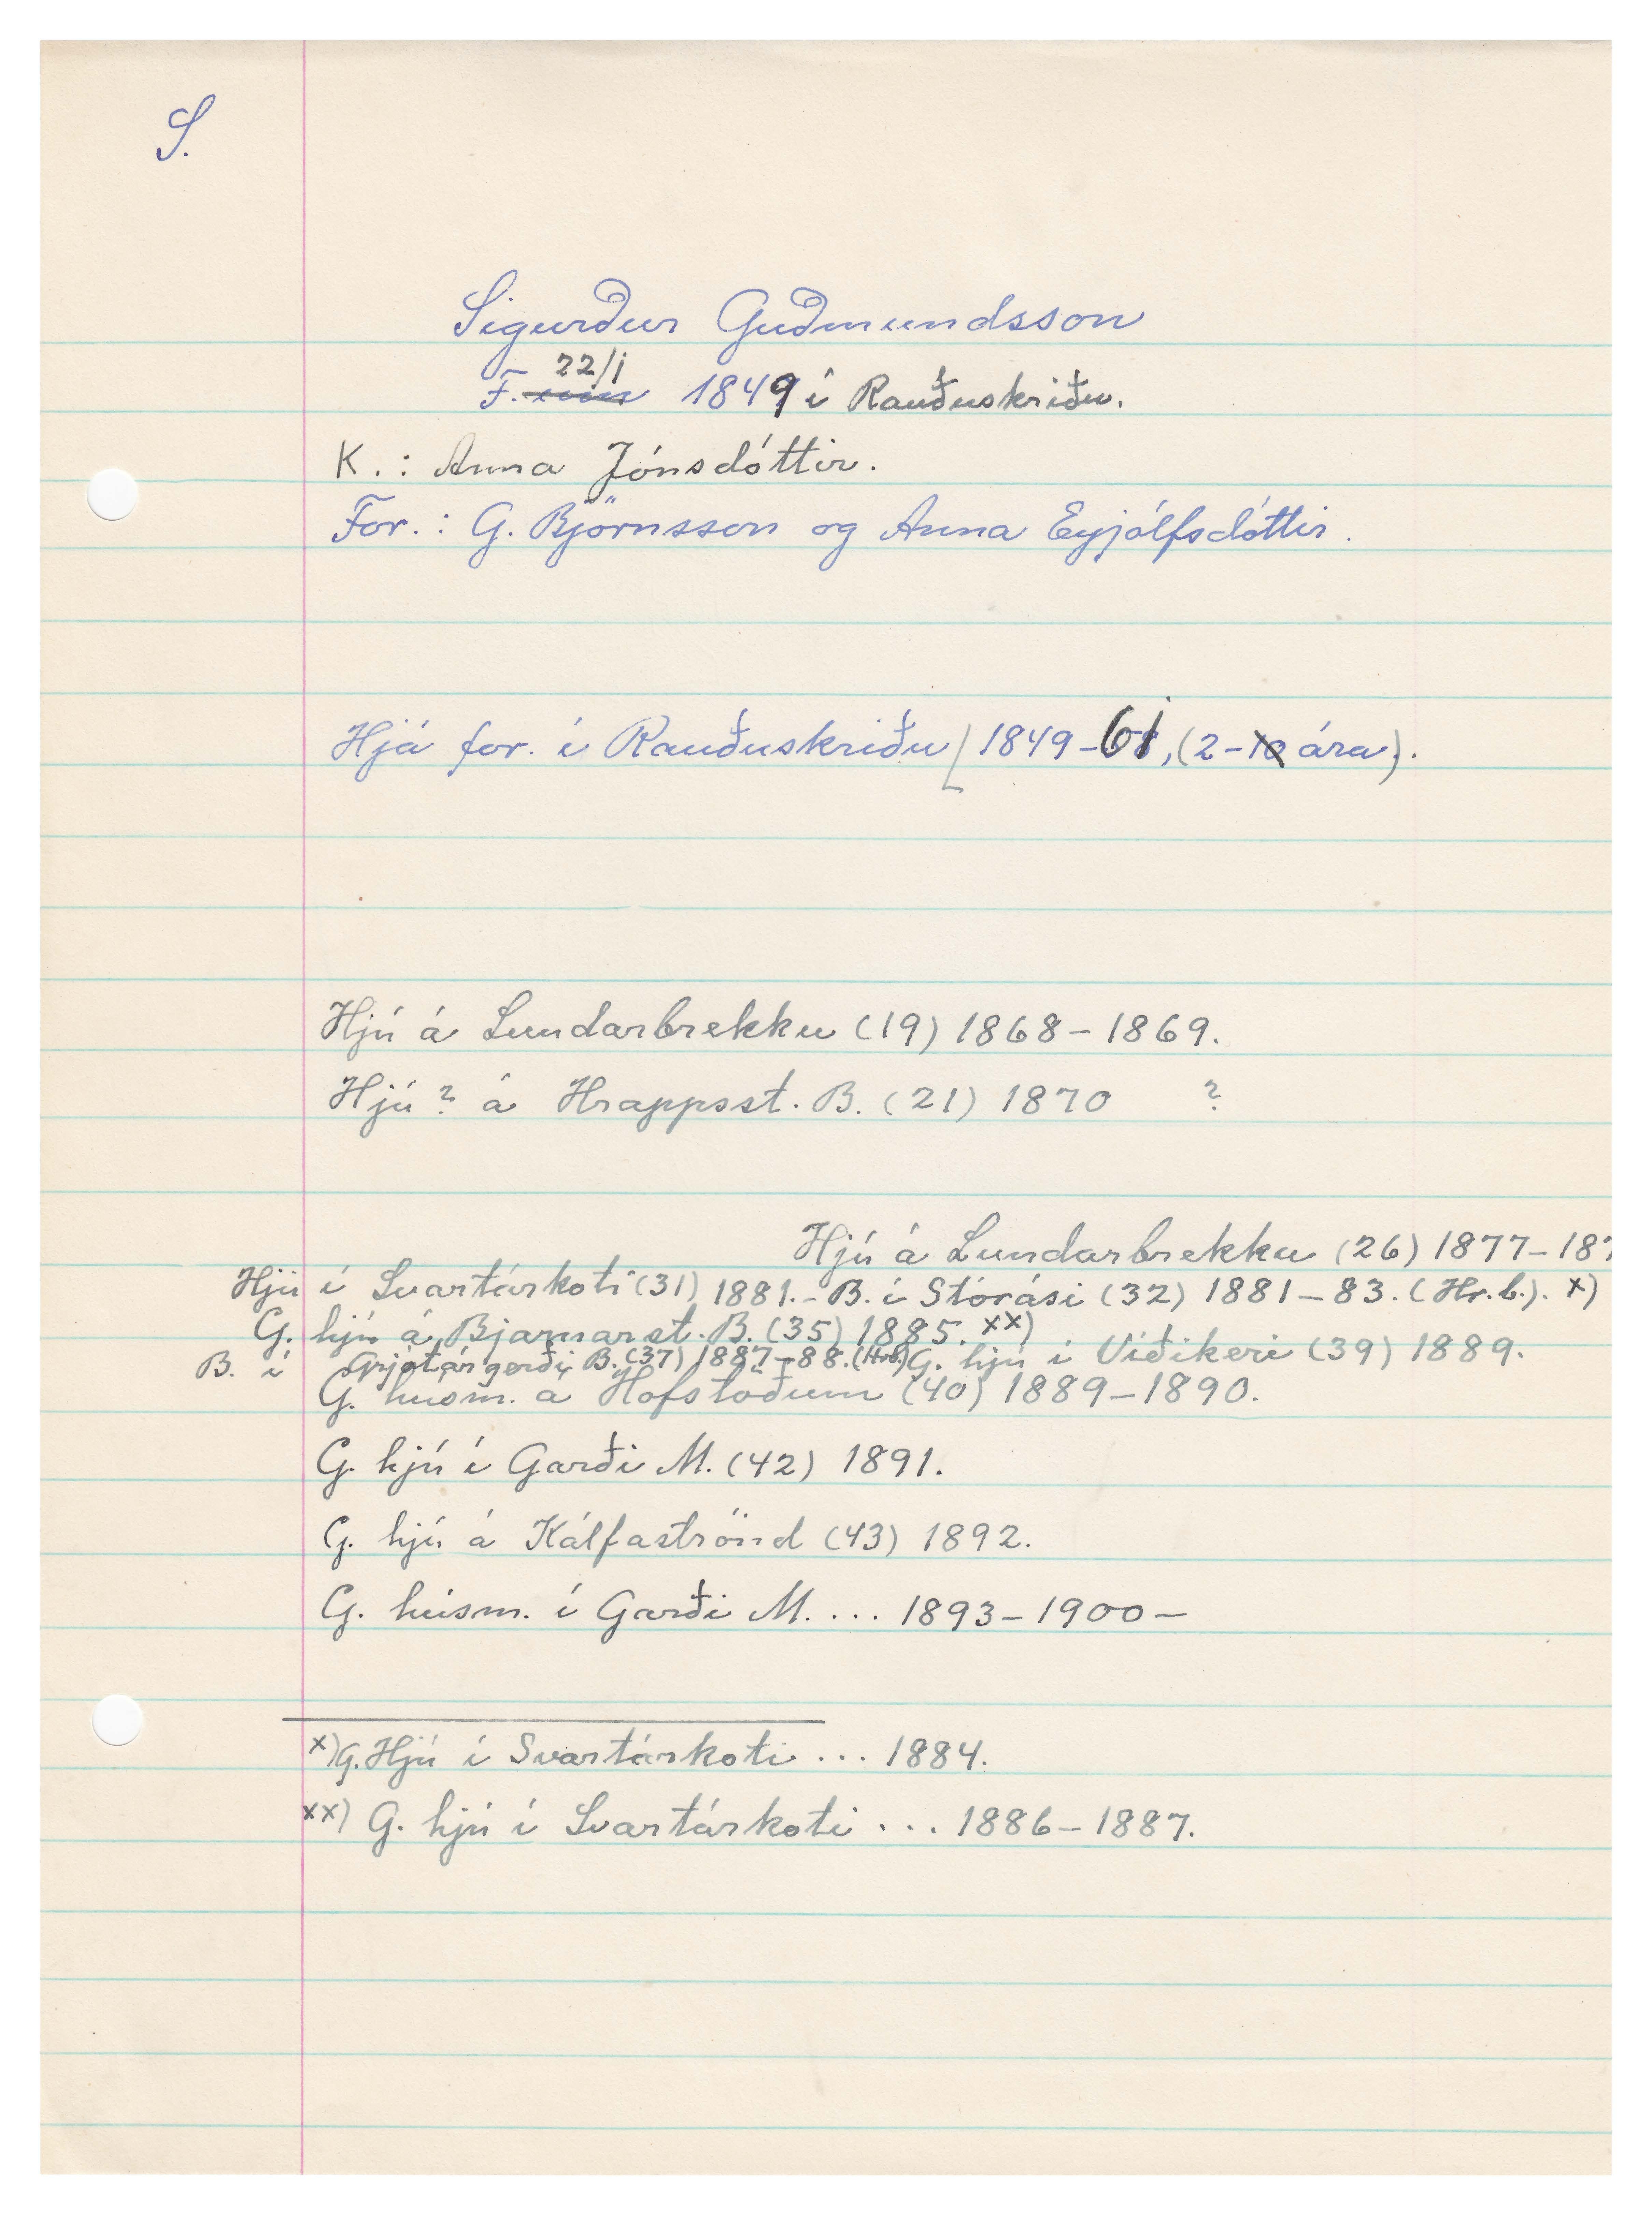 S.
Sigurður Guðmundsson
F. 22/1 1849 í Rauðuskriðu.
K.: Anna Jónsdóttir.
For.: G. Björnsson og Anna Eyjólfsdóttir.
Hjá for. í Rauðuskriðu 1849-61, (2- ára).
Hjú á Lundarbrekku (19) 1868-1869.
Hjú? á Hrappsst. B. (21) 1870 ?
Hjú á Lundarbrekku (26) 1877-187
Hjú í Svartárkoti (31) 1881.- B. í Stórási (32) 1881-83. (Hr.b.). x)
G. hjú á Bjarnarst. B. (35) 1885. xx)
B. í Grjótárgerði, B. (37) 1887-88. (Hrb.) G. hjú í Víðikeri (39) 1889.
G. húsm. á Hofstöðum (40) 1889-1890.
G. hjú í Garði M. (42) 1891.
G. hjú á Kálfaströnd (43) 1892.
G. húsm. í Garði M. ... 1893-1900-
x) G. Hjú í Svartárkoti ... 1884.
xx) G. hjú í Svartárkoti ... 1886-1887.